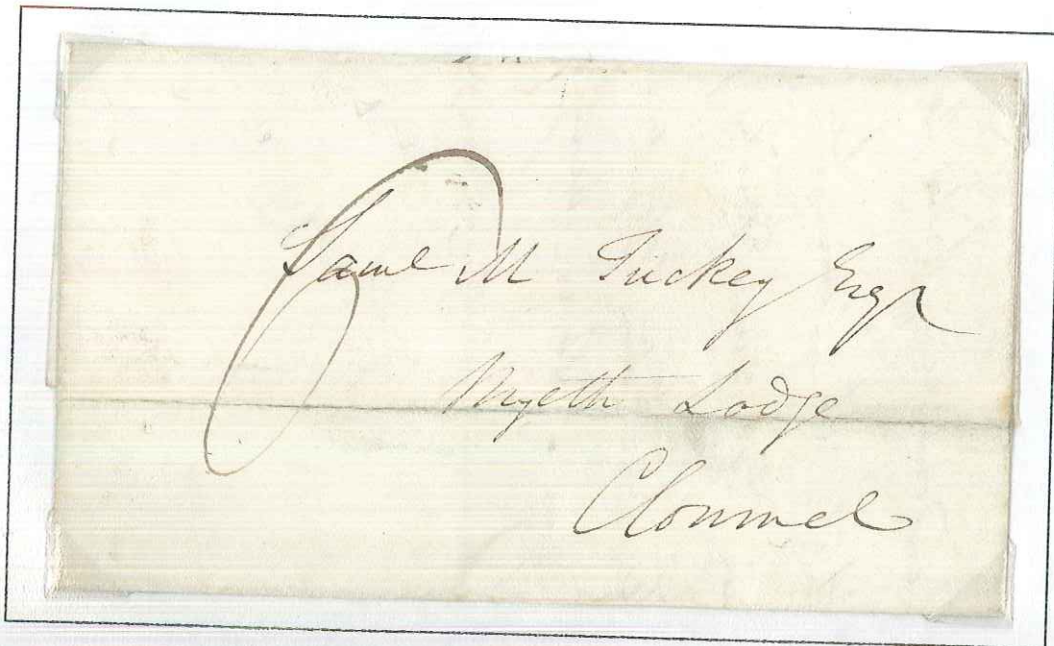 Saml M Tuckey Esqr
Lodge
Clonmel